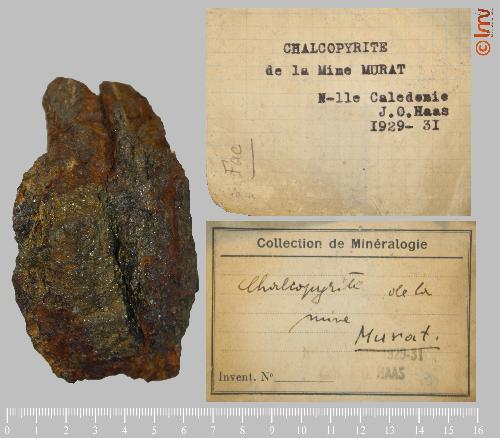 CHALCOPYRITE
de la Mine MURAT
N-lle Caledonie
J.O.Haas
1929- 31
Fac
© lmv
Collection de Minéralogie
Chalcopyrite de la
mine
Murat.
1929-31
HAAS
Invent. Nº
0 1 2 3 4 5 6 7 8 9 10 11 12 13 14 15 16